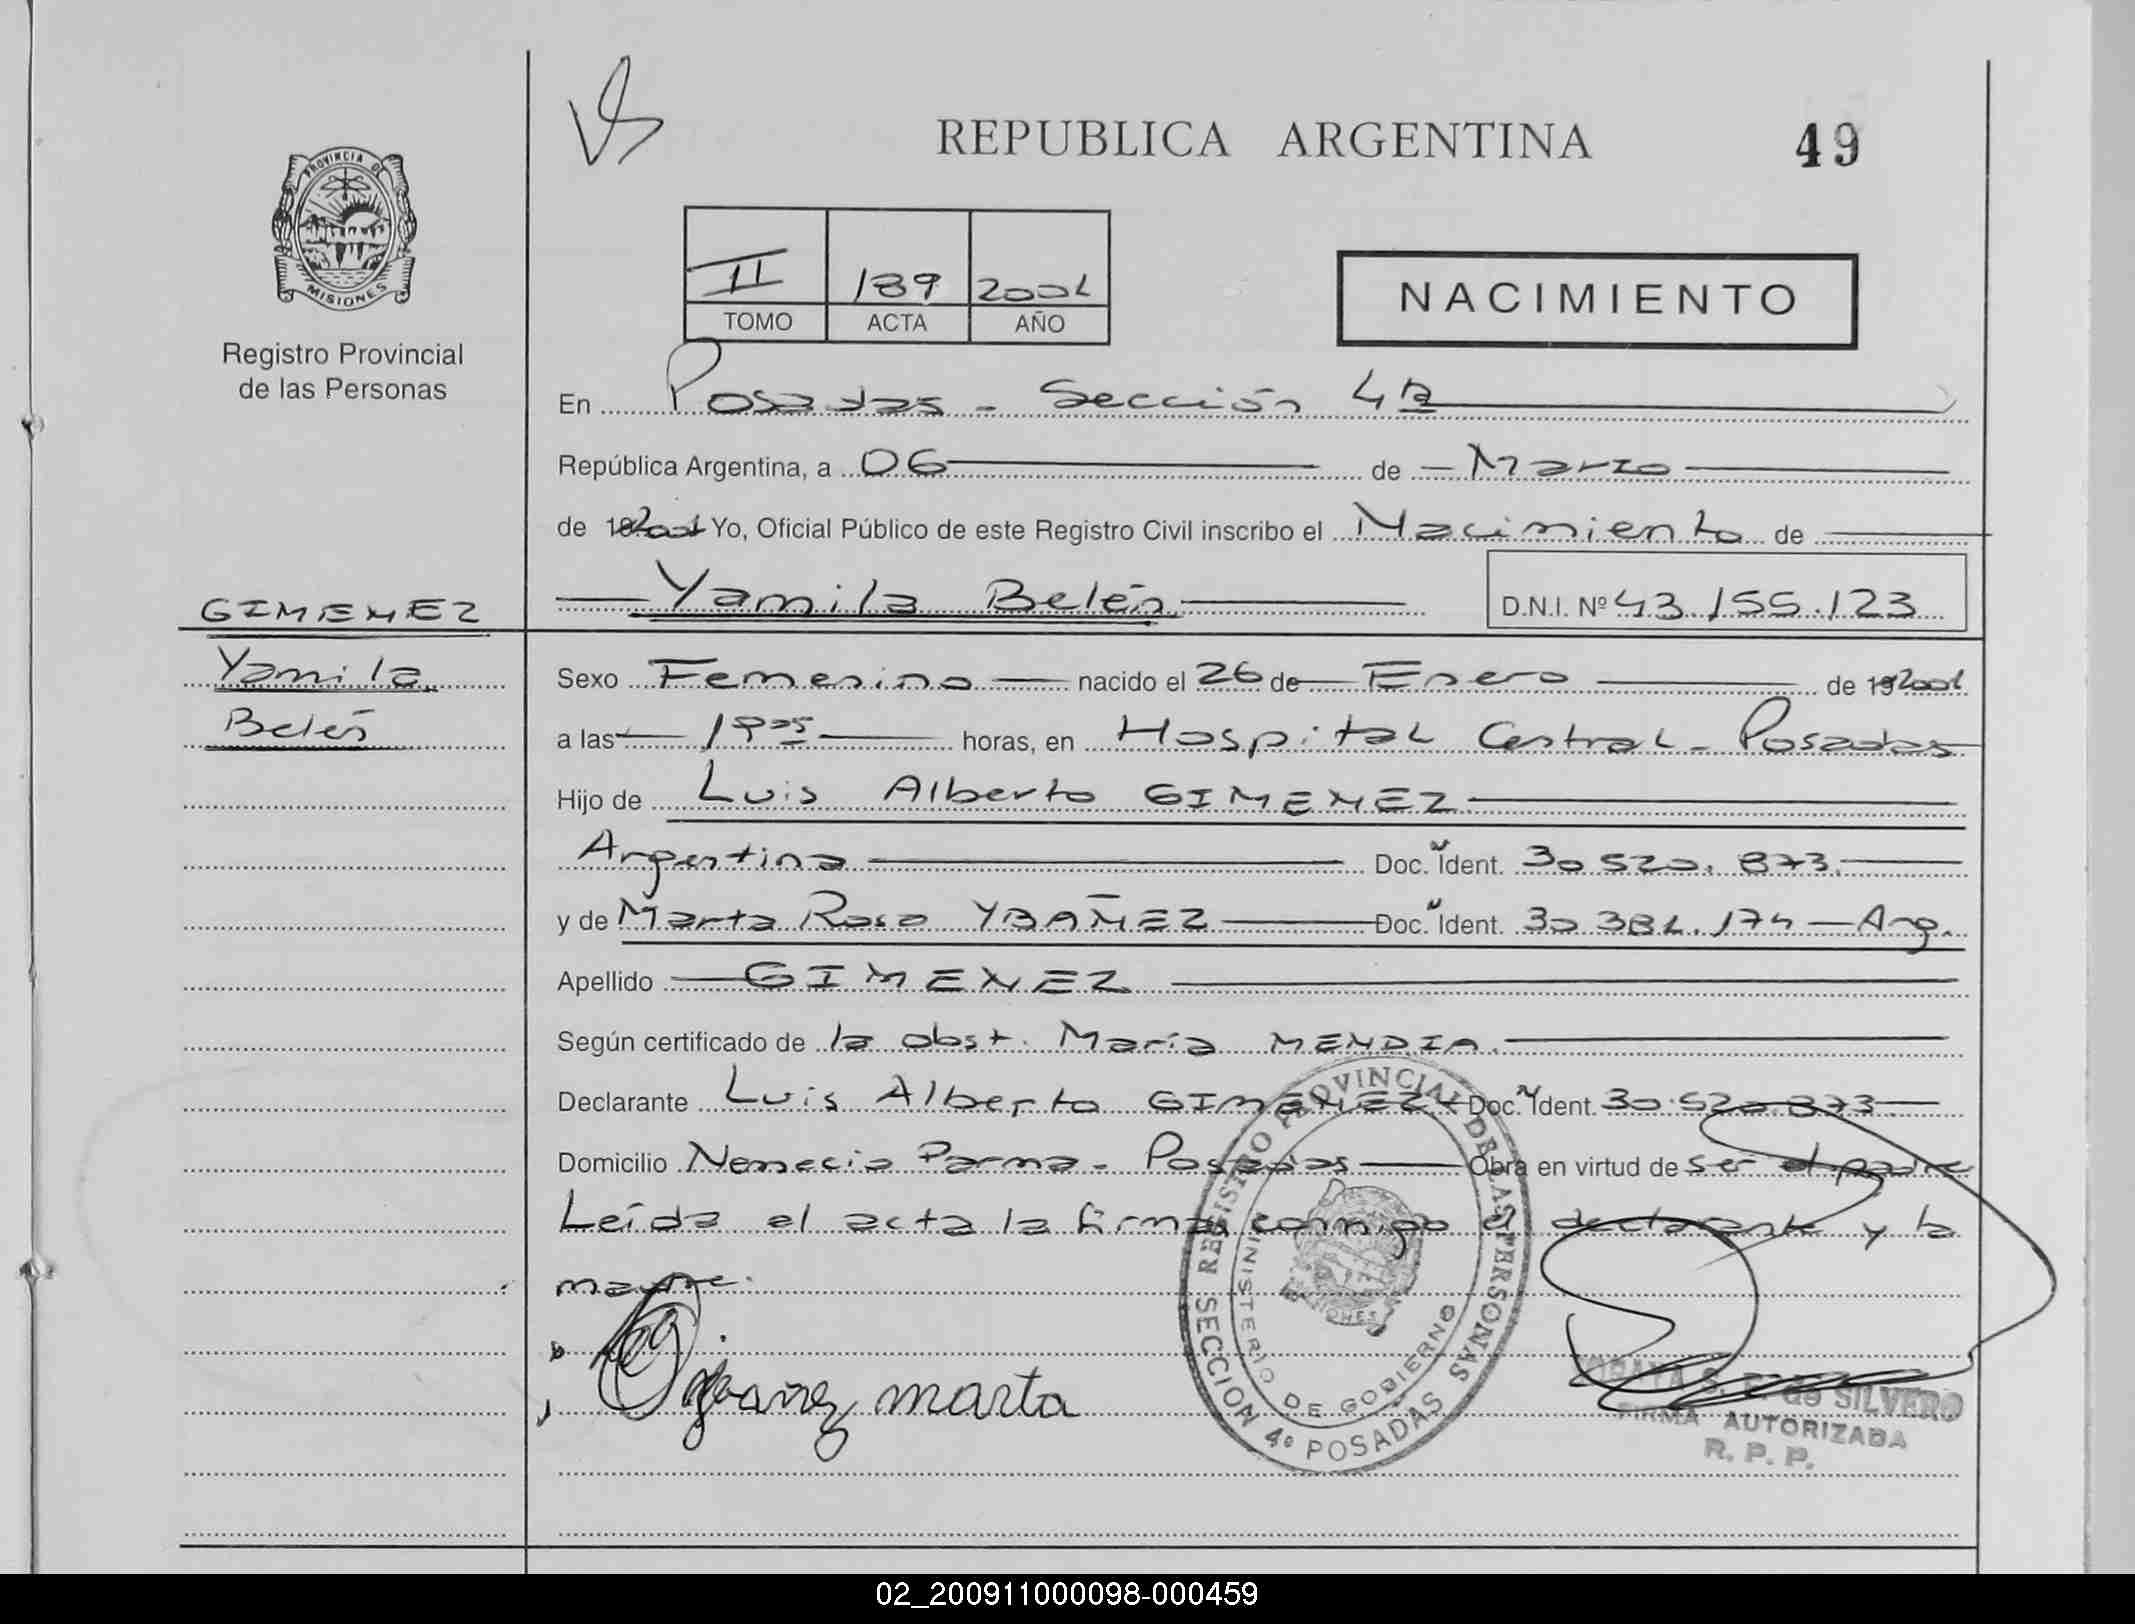 REPUBLICA ARGENTINA
49
PROVINCIA DE
MISIONES
Registro Provincial
de las Personas
II 189 2001
TOMO ACTA AÑO
NACIMIENTO
En Posadas - Sección 4ta
República Argentina, a 06 de Marzo
de 192001 Yo, Oficial Público de este Registro Civil inscribo el Nacimiento de
Yamila Belén D.N.I. Nº 43.155.123
GIMENEZ
Yamila
Belén
Sexo Femenino nacido el 26 de Enero de 192001
a las 1905 horas, en Hospital Central - Posadas
Hijo de Luis Alberto GIMENEZ
Argentina Doc. Ident. 30.520.873.
y de Marta Rosa YBAÑEZ Doc. Ident. 30.381.174 - Arg.
Apellido GIMENEZ
Según certificado de la obst. María MENDIA.
Declarante Luis Alberto GIMENEZ Doc. Ident. 30.520.873
Domicilio Nemecio Parma - Posadas Obra en virtud de ser el padre
Leída el acta la firma conmigo el declarante y la
madre.
marta
REGISTRO PROVINCIAL DE LAS PERSONAS
MINISTERIO DE GOBIERNO
MISIONES
SECCION 4º POSADAS
de SILVERO
FIRMA AUTORIZADA
R. P. P.
02_200911000098-000459